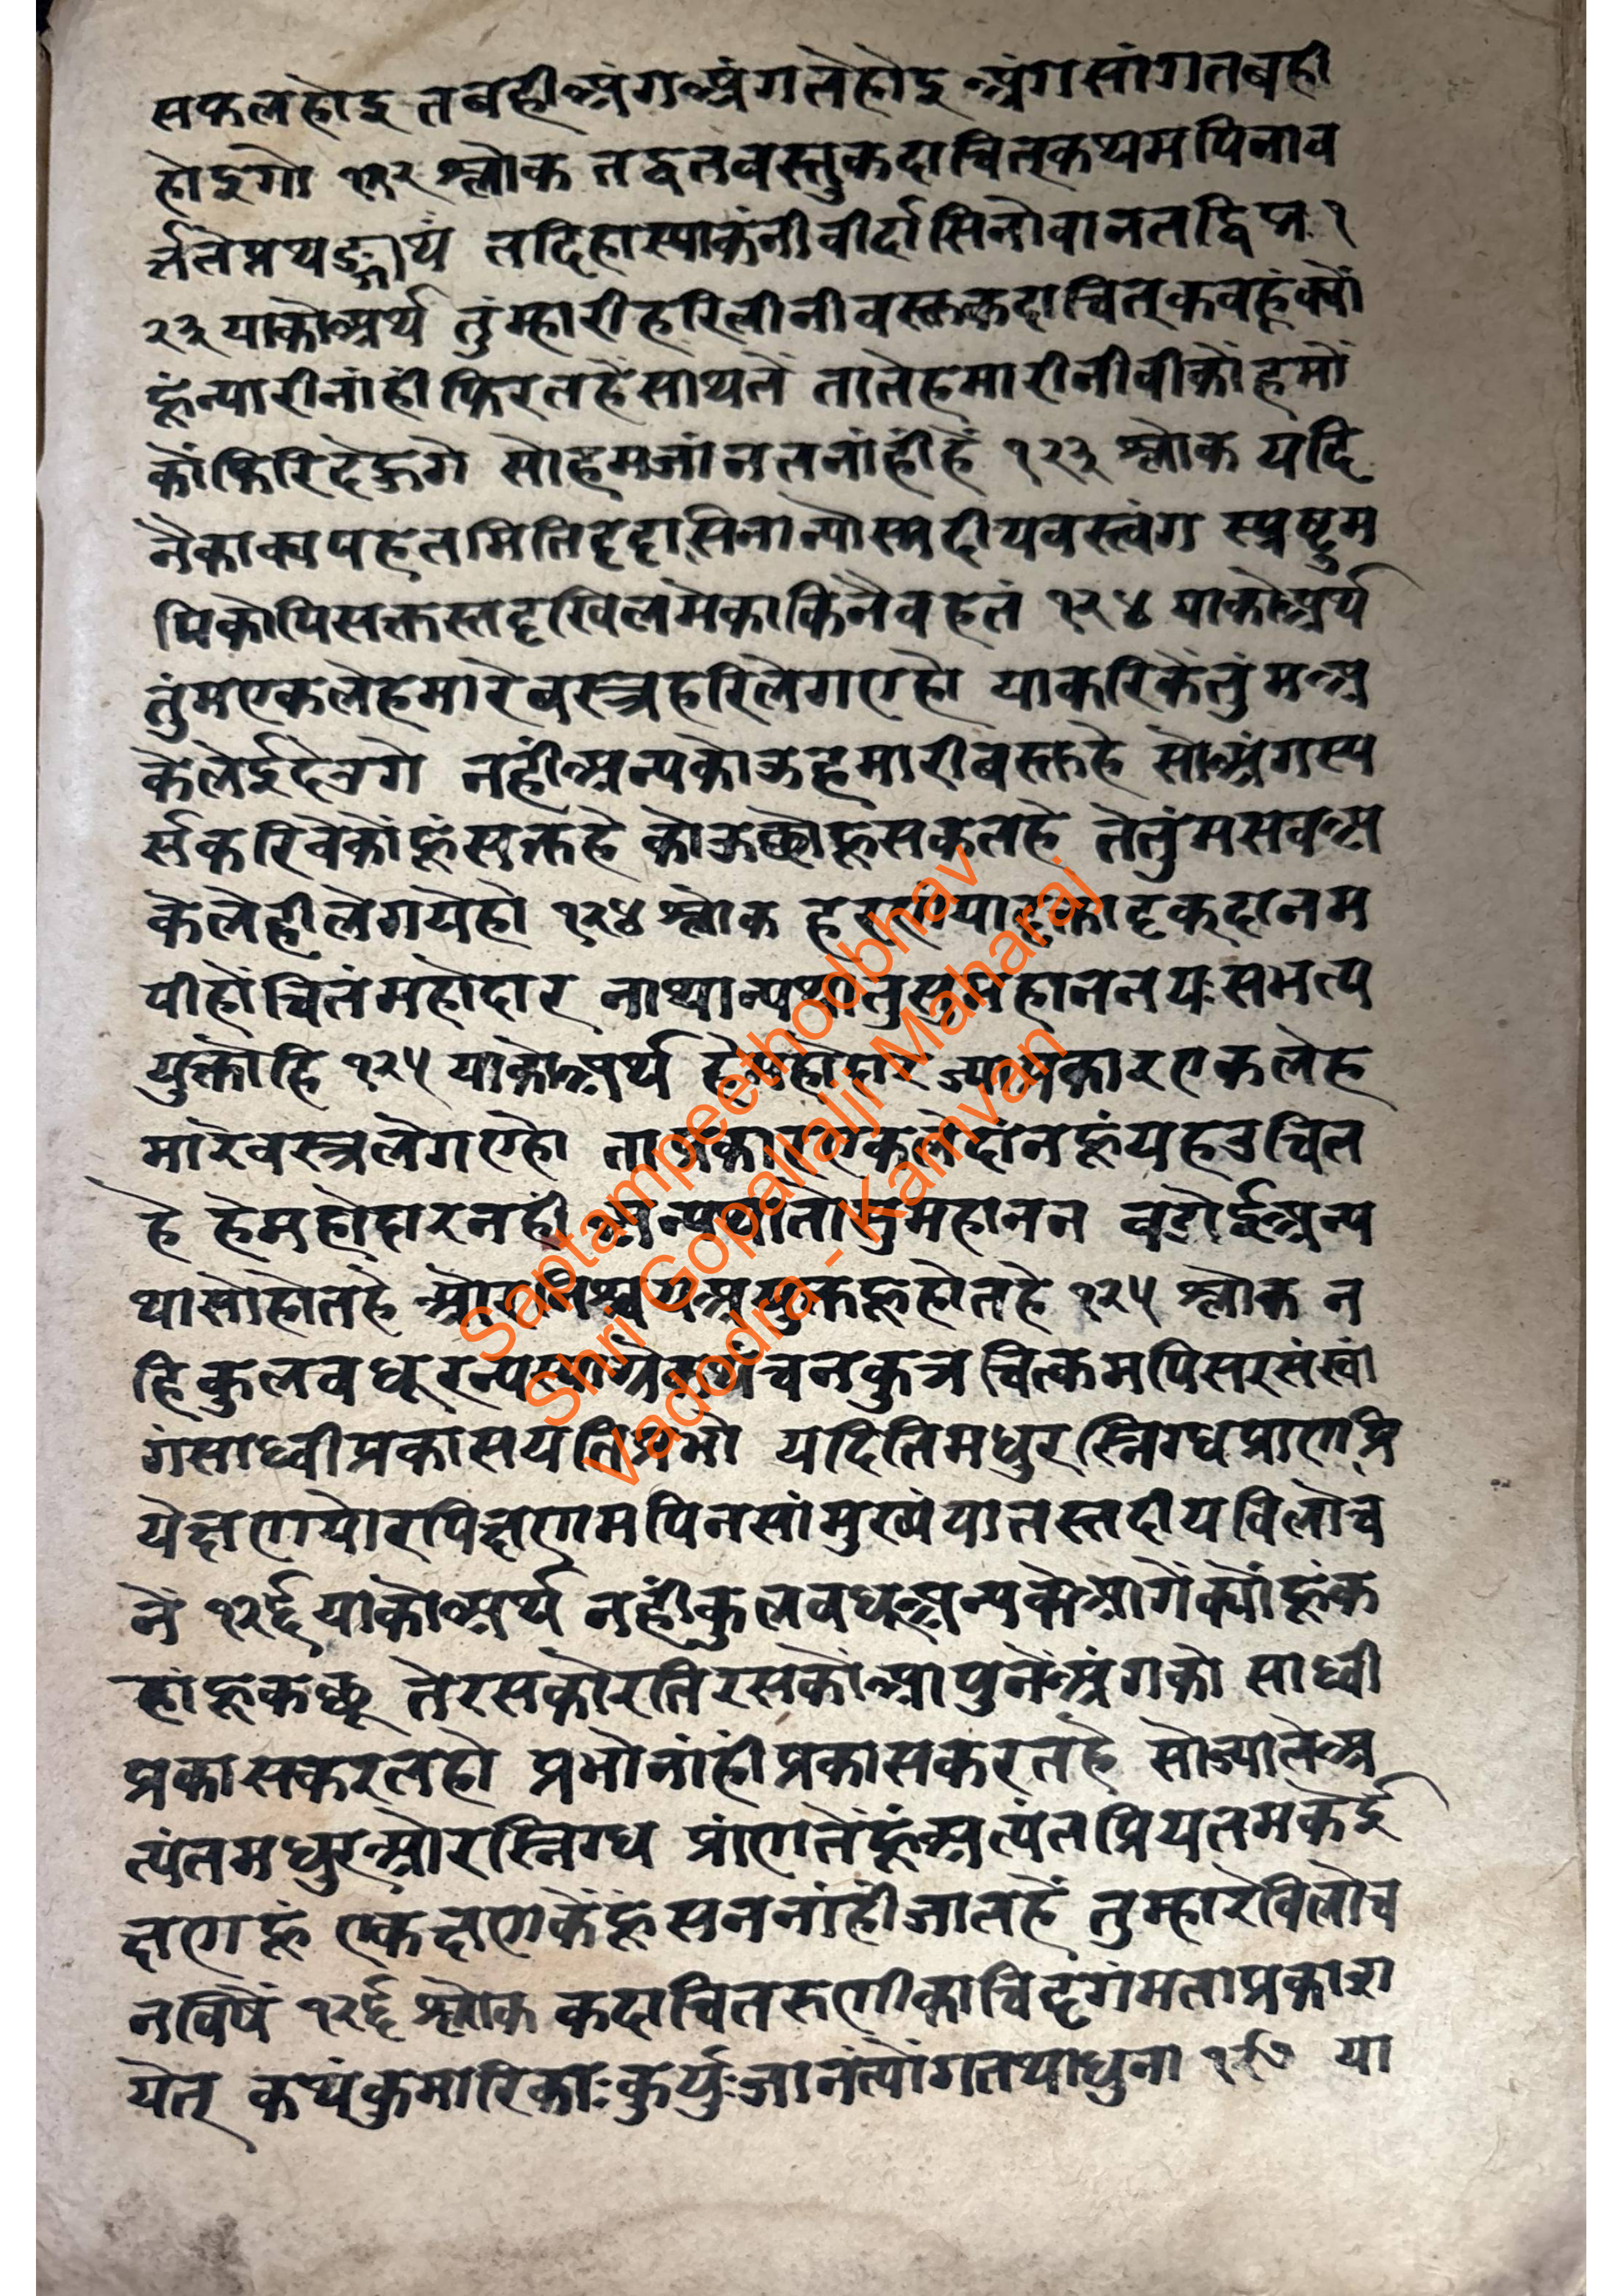 सफलहोइ तबहीअंगअंगतेहोइ अंगसांगतबही
होइगो १२२ श्लोक तद्वतवस्तुकदाचित्कथमपिनाव
र्त्तते तदिहास्माकंनीवींदासिनोवानतद्विद्म १
२३ याकोअर्थ तुंम्हारीहरिलीनीवस्तकदाचित्कवहूंक्यों
हूंन्यारीनांहीफिरतहैंसाथतें तातेहमारीनीवीकोंहमों
कोंफिरिदेऊगे सोहमजांनतनांहींहैं १२३ श्लोक यदि
नैकाक्यपहृतमितिदृदासिनान्योस्मदीयवस्त्वंग स्प्रष्टुम
पिकोपिसक्तस्तदृखिलमेकाकिनैवहृतं १२४ याकोअर्थ
तुंमएकलेहमारेवस्त्रहरिलेगएहो याकरिकेंतुंमअ
केलेईदेउगे नहींअन्यकोऊहमारीवस्तहै सोअंगस्प
र्सकरिवेकोंहूंसक्तहै कोऊछीहूसकतहै तेतुंमसवअ
केलेहीलेगयेहो १२४ श्लोक
पीहोचितंमहोदार नाथान्यथातुसुमहाननयःसमत्प
युक्तोहि १२५ याकोअर्थ हेमहोदार ज्याप्रकारएकलेह
मारेवस्त्रलेगएहो ताप्रकारएकलेदांनहूंयहउचित
है हेमहोदारनहीं अन्यथातोसुमहानन वडोईअन्य
थासोहोतहै औरनिश्चयअयुक्तहूहोतहै १२५ श्लोक न
हिकुलवधूरन्यस्याग्रेकथंचनकुत्रचित्कमपिसरसंस्वां
गंसाध्वीप्रकासयतिप्रभो यदितिमधुरस्निग्धप्राणप्रि
येक्षणयोरपिक्षणमपिनसांमुख्यंयातस्तदीयविलोच
नें १२६ याकोअर्थ नहींकुलवधूअन्यकेआगेंक्योंहूंक
हांहूकछू तेरसकोरतिरसकोंआपुनेंअंगको साध्वी
प्रकासकरतहो प्रभोनांहींप्रकासकरतहै सोज्यातेअ
त्यंतमधुरऔरस्निग्ध प्रांणतेंहूंअत्यंतप्रियतमकेई
क्षणहूं एकक्षणकेंहूंसननांहींजातहैं तुम्हारेविलोच
नविषें १२६ श्लोक कदाचितरुणीकाचिदृगंमताप्रकाश
येत् कथंकुमारिकाःकुर्युःजानंत्योंगतथाधुना १२७ या
Saptampeethodbhav
Shri Gopallalji Maharaj
Vadodra - Kamvan